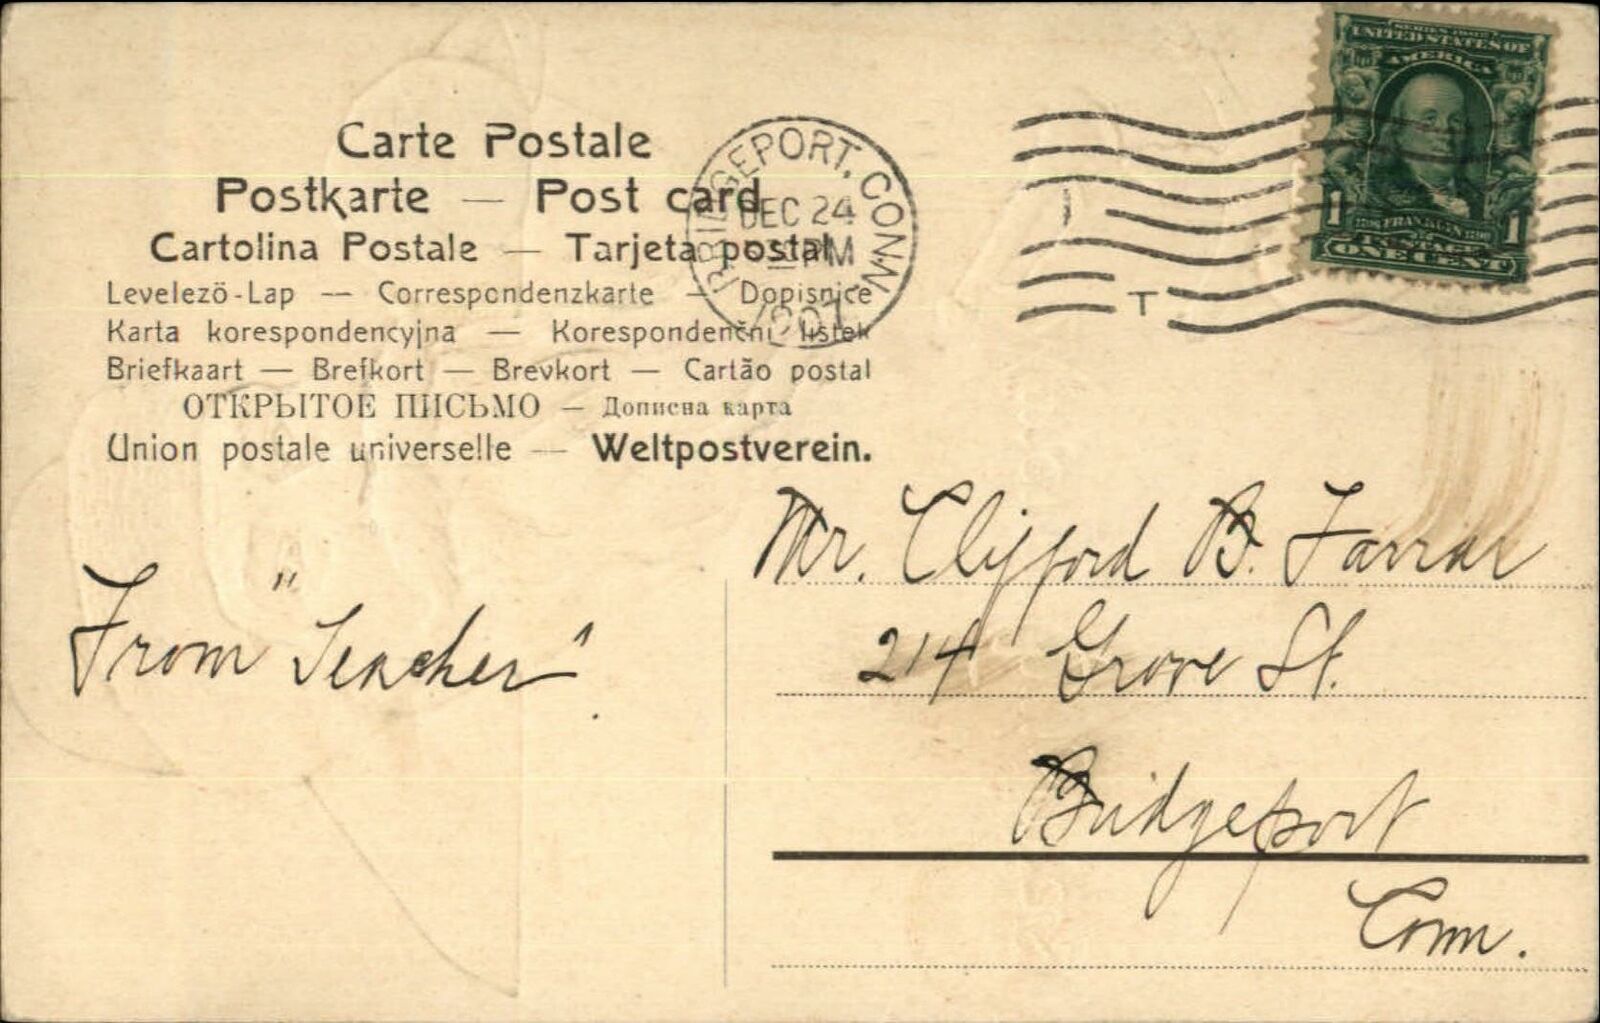 Carte Postale
Postkarte — Post card
Cartolina Postale — Tarjeta postal
Levelezö-Lap — Correspondenzkarte — Dopisnice
Karta korespondencyjna — Korespondenční lístek
Briefkaart — Brefkort — Brevkort — Cartão postal
ОТКРЫТОЕ ПИСЬМО — Дописна карта
Union postale universelle — Weltpostverein.
BRIDGEPORT, CONN.
DEC 24
PM
1907
I
T
UNITED STATES OF
AMERICA
1 FRANKLIN 1
POSTAGE
ONE CENT
Mr. Clifford B. Farrar
214 Grove St.
Bridgeport
Conn.
From "Teacher".